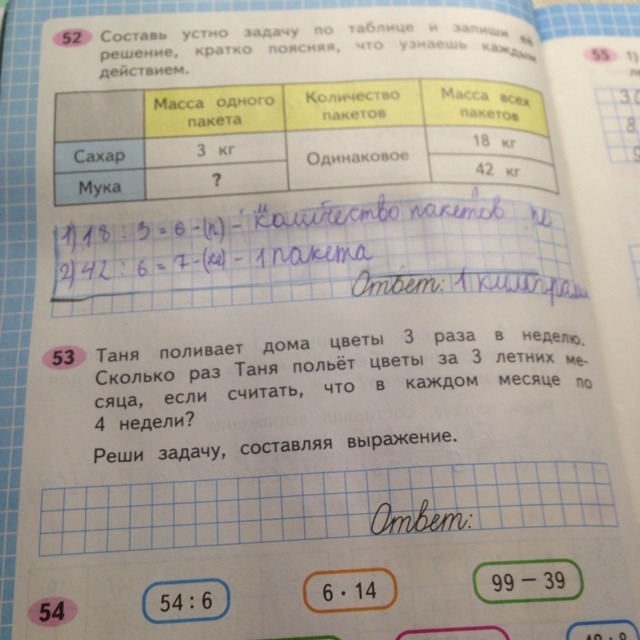 52 Составь устно задачу по таблице и запиши её
решение, кратко поясняя, что узнаешь каждым
действием.
Масса одного пакета Количество пакетов Масса всех пакетов
Сахар 3 кг Одинаковое 18 кг
Мука ? 42 кг
1) 18 : 3 = 6 - (п) - количество пакетов
2) 42 : 6 = 7 - (кг) - 1 пакета
Ответ: 1 килограмм
53 Таня поливает дома цветы 3 раза в неделю.
Сколько раз Таня польёт цветы за 3 летних ме-
сяца, если считать, что в каждом месяце по
4 недели?
Реши задачу, составляя выражение.
Ответ:
54 54 : 6 6 · 14 99 − 39
55 1)